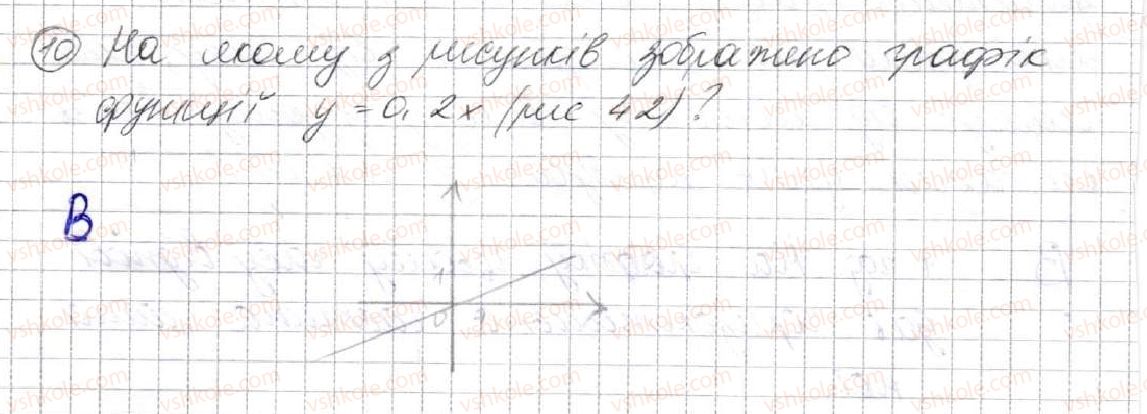 10 На якому з рисунків зображено графік
функції y = 0,2x (рис 42)?
В
0